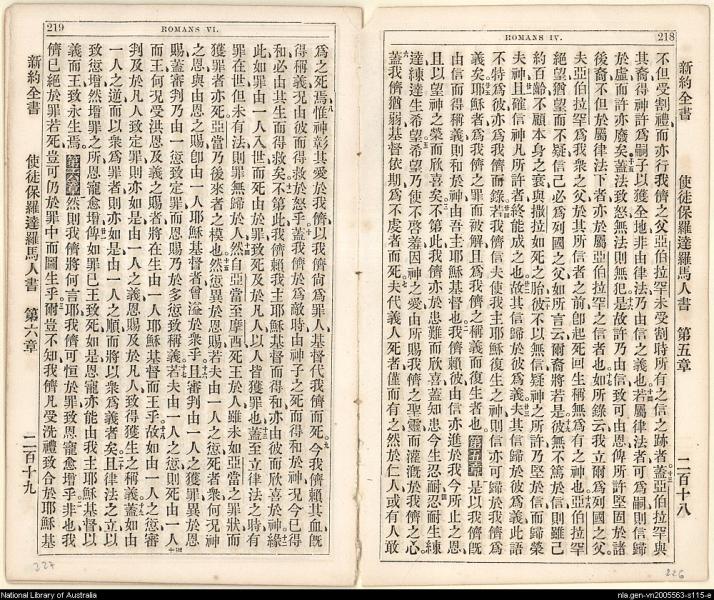 218
ROMANS IV.
新約全書 使徒保羅達羅馬人書 第五章 二百十八
不但受割禮而亦行我儕之父亞伯拉罕未受割時所有之信之跡者蓋亞伯拉罕與
其裔得神許爲嗣子以獲全地非由律法乃由信之義也若屬律法者可爲嗣則信歸
於虛而許亦廢矣蓋法致怒無法則無犯是故許乃由信致可由恩俾所許堅固於諸
後裔不但於屬律法下者亦於屬亞伯拉罕之信者也如所錄云我立爾爲列國之父
夫亞伯拉罕爲我衆之父於其所信者之前卽起死回生稱無爲有之神也亞伯拉罕
絕望猶望而不疑信己必爲列國之父如所言云爾裔將若是彼無不篤於信則雖己
約百齡不顧本身之衰與撒拉如死之胎彼不以無信疑神之所許乃堅於信而歸榮
夫神且確信神凡所許者終能成之也故其信歸於彼爲義夫其信歸於彼爲義此語
不特爲彼亦爲我儕而錄若我儕信夫使我主耶穌復生之神則信亦可歸於我儕爲
義矣耶穌者爲我儕之罪而被解且爲我儕之稱義而復生者也第五章是以我儕旣
由信而得稱義則和於神由吾主耶穌基督也我儕賴彼由信亦進於我今所止之恩
且以望神之榮而欣喜矣不第此我儕亦於患難而欣喜蓋知患今生忍耐忍耐生練
達練達生希望希望乃使不啓羞因神之愛由所賜我儕之聖靈而灌漑於我儕之心
蓋我儕猶弱基督依期爲不虔者而死夫代義人死者僅而有之然於仁人或有人敢
219
ROMANS VI.
爲之死焉惟神彰其愛於我儕以我儕尙爲罪人基督代我儕而死今我儕賴其血旣
得稱義況由彼而得救於怒乎蓋我儕於爲敵時由神子之死而得和於神況今已得
和必由其生而得救矣不第此我儕賴我主耶穌基督而得和亦由彼而欣喜於神緣
此如罪由一人入世而死由於罪致死及於凡人以人皆獲罪也蓋至立律法之時有
罪在世但未有法則罪無歸於人然自亞當至摩西死王於人雖未如亞當之罪狀而
獲罪者亦死亞當乃後來者之模也然愆異於恩賜若夫由一人之愆死者衆何況神
之恩與由恩之賜卽由一人耶穌基督者曾溢於衆乎且審判由一人之獲罪異於恩
賜蓋審判乃由一愆致定罪而恩賜乃於多愆致稱義若夫由一人之愆則死由一人
而王何況受洪恩及義之賜者將在生由一人耶穌基督而王乎故如由一人之愆審
判及於凡人致定罪則亦如是由一人之義恩賜及於凡人致得獲生之稱義蓋如由
一人之逆而以衆爲罪者則亦如是由一人之順而將以衆爲義者矣且律法之立以
致愆增然增罪之所恩寵愈增俾如罪已王致死如是恩寵亦能由我主耶穌基督以
義而王致永生焉第六章然則我儕將何言耶我儕可恒於罪致恩寵愈增乎非也我
儕已絕於罪若死豈可仍於罪中而圖生乎爾豈不知我儕凡受洗禮致合於耶穌基
新約全書 使徒保羅達羅馬人書 第六章 二百十九
227
226
National Library of Australia
nla.gen-vn2005563-s115-e